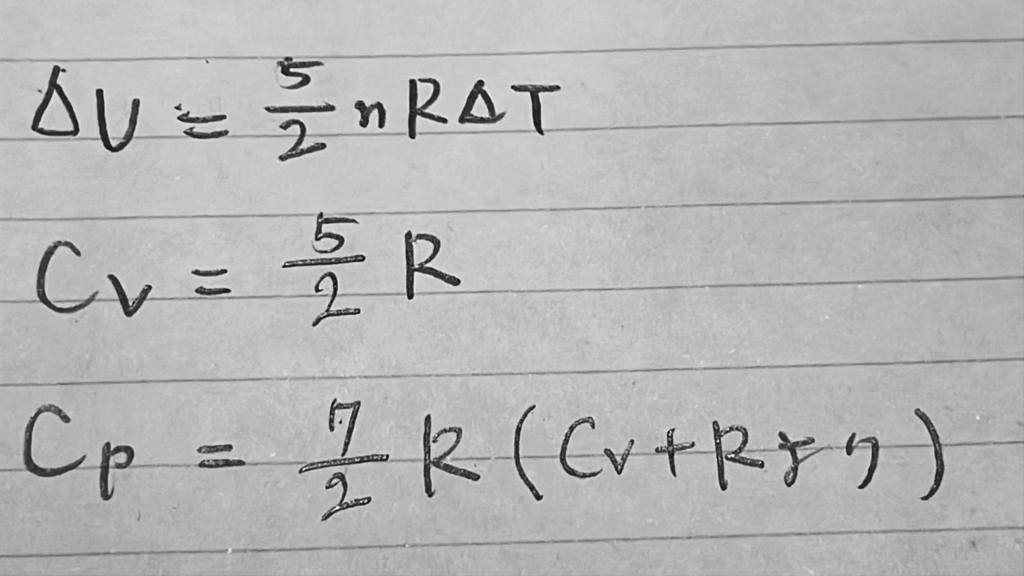 ΔU = 5/2 nRΔT
Cv = 5/2 R
Cp = 7/2 R (Cv+Rより)